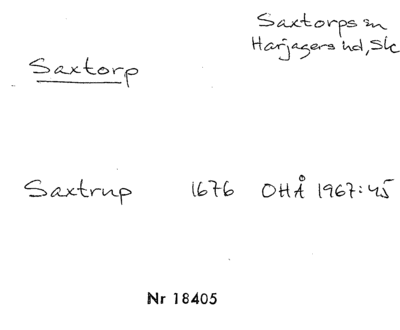 Saxtorps sn
Harjagers hd, Sk
Saxtorp
Saxtrup 1676 OHÅ 1967:45
Nr 18405